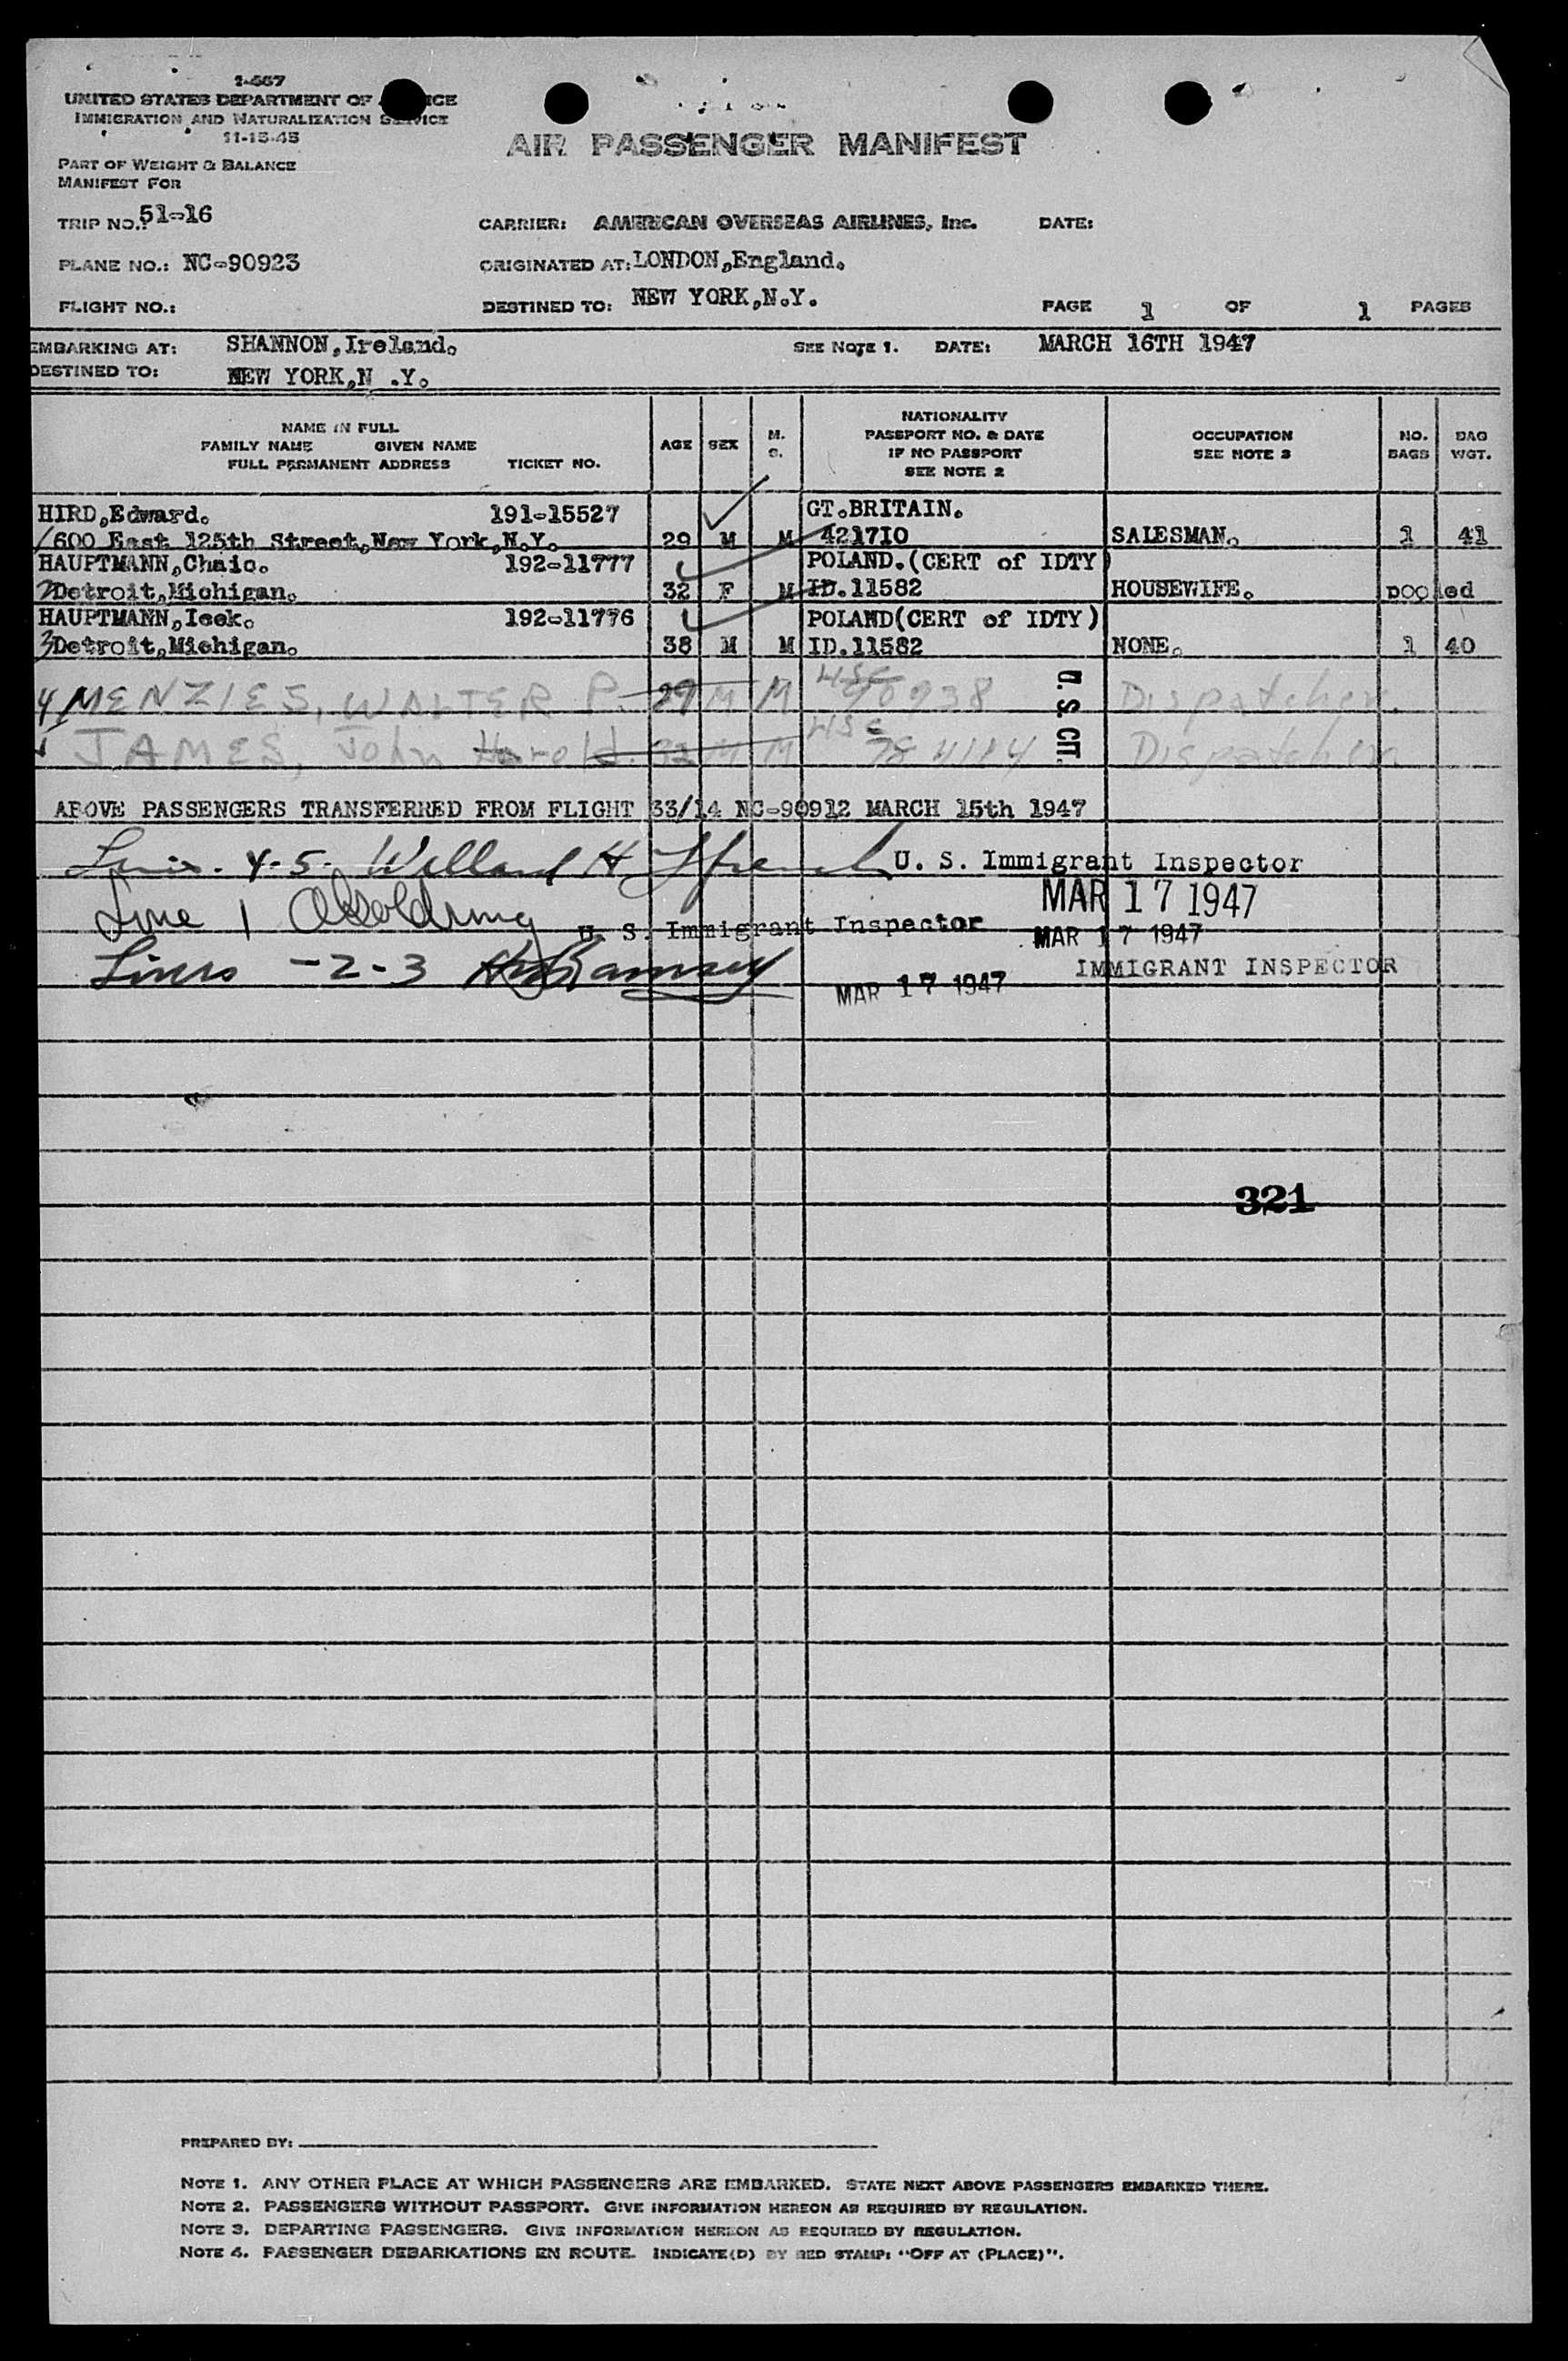 1-557
UNITED STATES DEPARTMENT OF ICE
IMMIGRATION AND NATURALIZATION SERVICE
11-15-45
AIR PASSENGER MANIFEST
PART OF WEIGHT & BALANCE
MANIFEST FOR
TRIP NO.: 51-16 CARRIER: AMERICAN OVERSEAS AIRLINES, Inc. DATE:
PLANE NO.: NC-90923 ORIGINATED AT: LONDON,England.
FLIGHT NO.: DESTINED TO: NEW YORK,N.Y. PAGE 1 OF 1 PAGES
EMBARKING AT: SHANNON,Ireland. SEE NOTE 1. DATE: MARCH 16TH 1947
DESTINED TO: NEW YORK,N .Y.
NAME IN FULL
FAMILY NAME GIVEN NAME
FULL PERMANENT ADDRESS TICKET NO. AGE SEX M. S. NATIONALITY PASSPORT NO. & DATE IF NO PASSPORT SEE NOTE 2 OCCUPATION SEE NOTE 3 NO. BAGS BAG WGT.
HIRD,Edward. 191-15527 GT.BRITAIN.
1 600 East 125th Street,New York,N.Y. 29 M M 421710 SALESMAN. 1 41
HAUPTMANN,Chaic. 192-11777 POLAND.(CERT of IDTY)
2 Detroit,Michigan. 32 F M ID.11582 HOUSEWIFE. pooled
HAUPTMANN,Icek. 192-11776 POLAND(CERT of IDTY)
3 Detroit,Michigan. 38 M M ID.11582 NONE. 1 40
4 MENZIES, WALTER P. 29 M M USC 90938 U. S. CIT. Dispatcher.
JAMES, John Harold. 32 M M USC Dispatcher
ABOVE PASSENGERS TRANSFERRED FROM FLIGHT 33/14 NC-90912 MARCH 15th 1947
4-5. Willard H U. S. Immigrant Inspector
MAR 17 1947
Line 1 U. S. Immigrant Inspector MAR 17 1947
Lines -2-3 Ramsey IMMIGRANT INSPECTOR
MAR 17 1947
321
PREPARED BY:
NOTE 1. ANY OTHER PLACE AT WHICH PASSENGERS ARE EMBARKED. STATE NEXT ABOVE PASSENGERS EMBARKED THERE.
NOTE 2. PASSENGERS WITHOUT PASSPORT. GIVE INFORMATION HEREON AS REQUIRED BY REGULATION.
NOTE 3. DEPARTING PASSENGERS. GIVE INFORMATION HEREON AS REQUIRED BY REGULATION.
NOTE 4. PASSENGER DEBARKATIONS EN ROUTE. INDICATE(D) BY RED STAMP: "OFF AT (PLACE)".